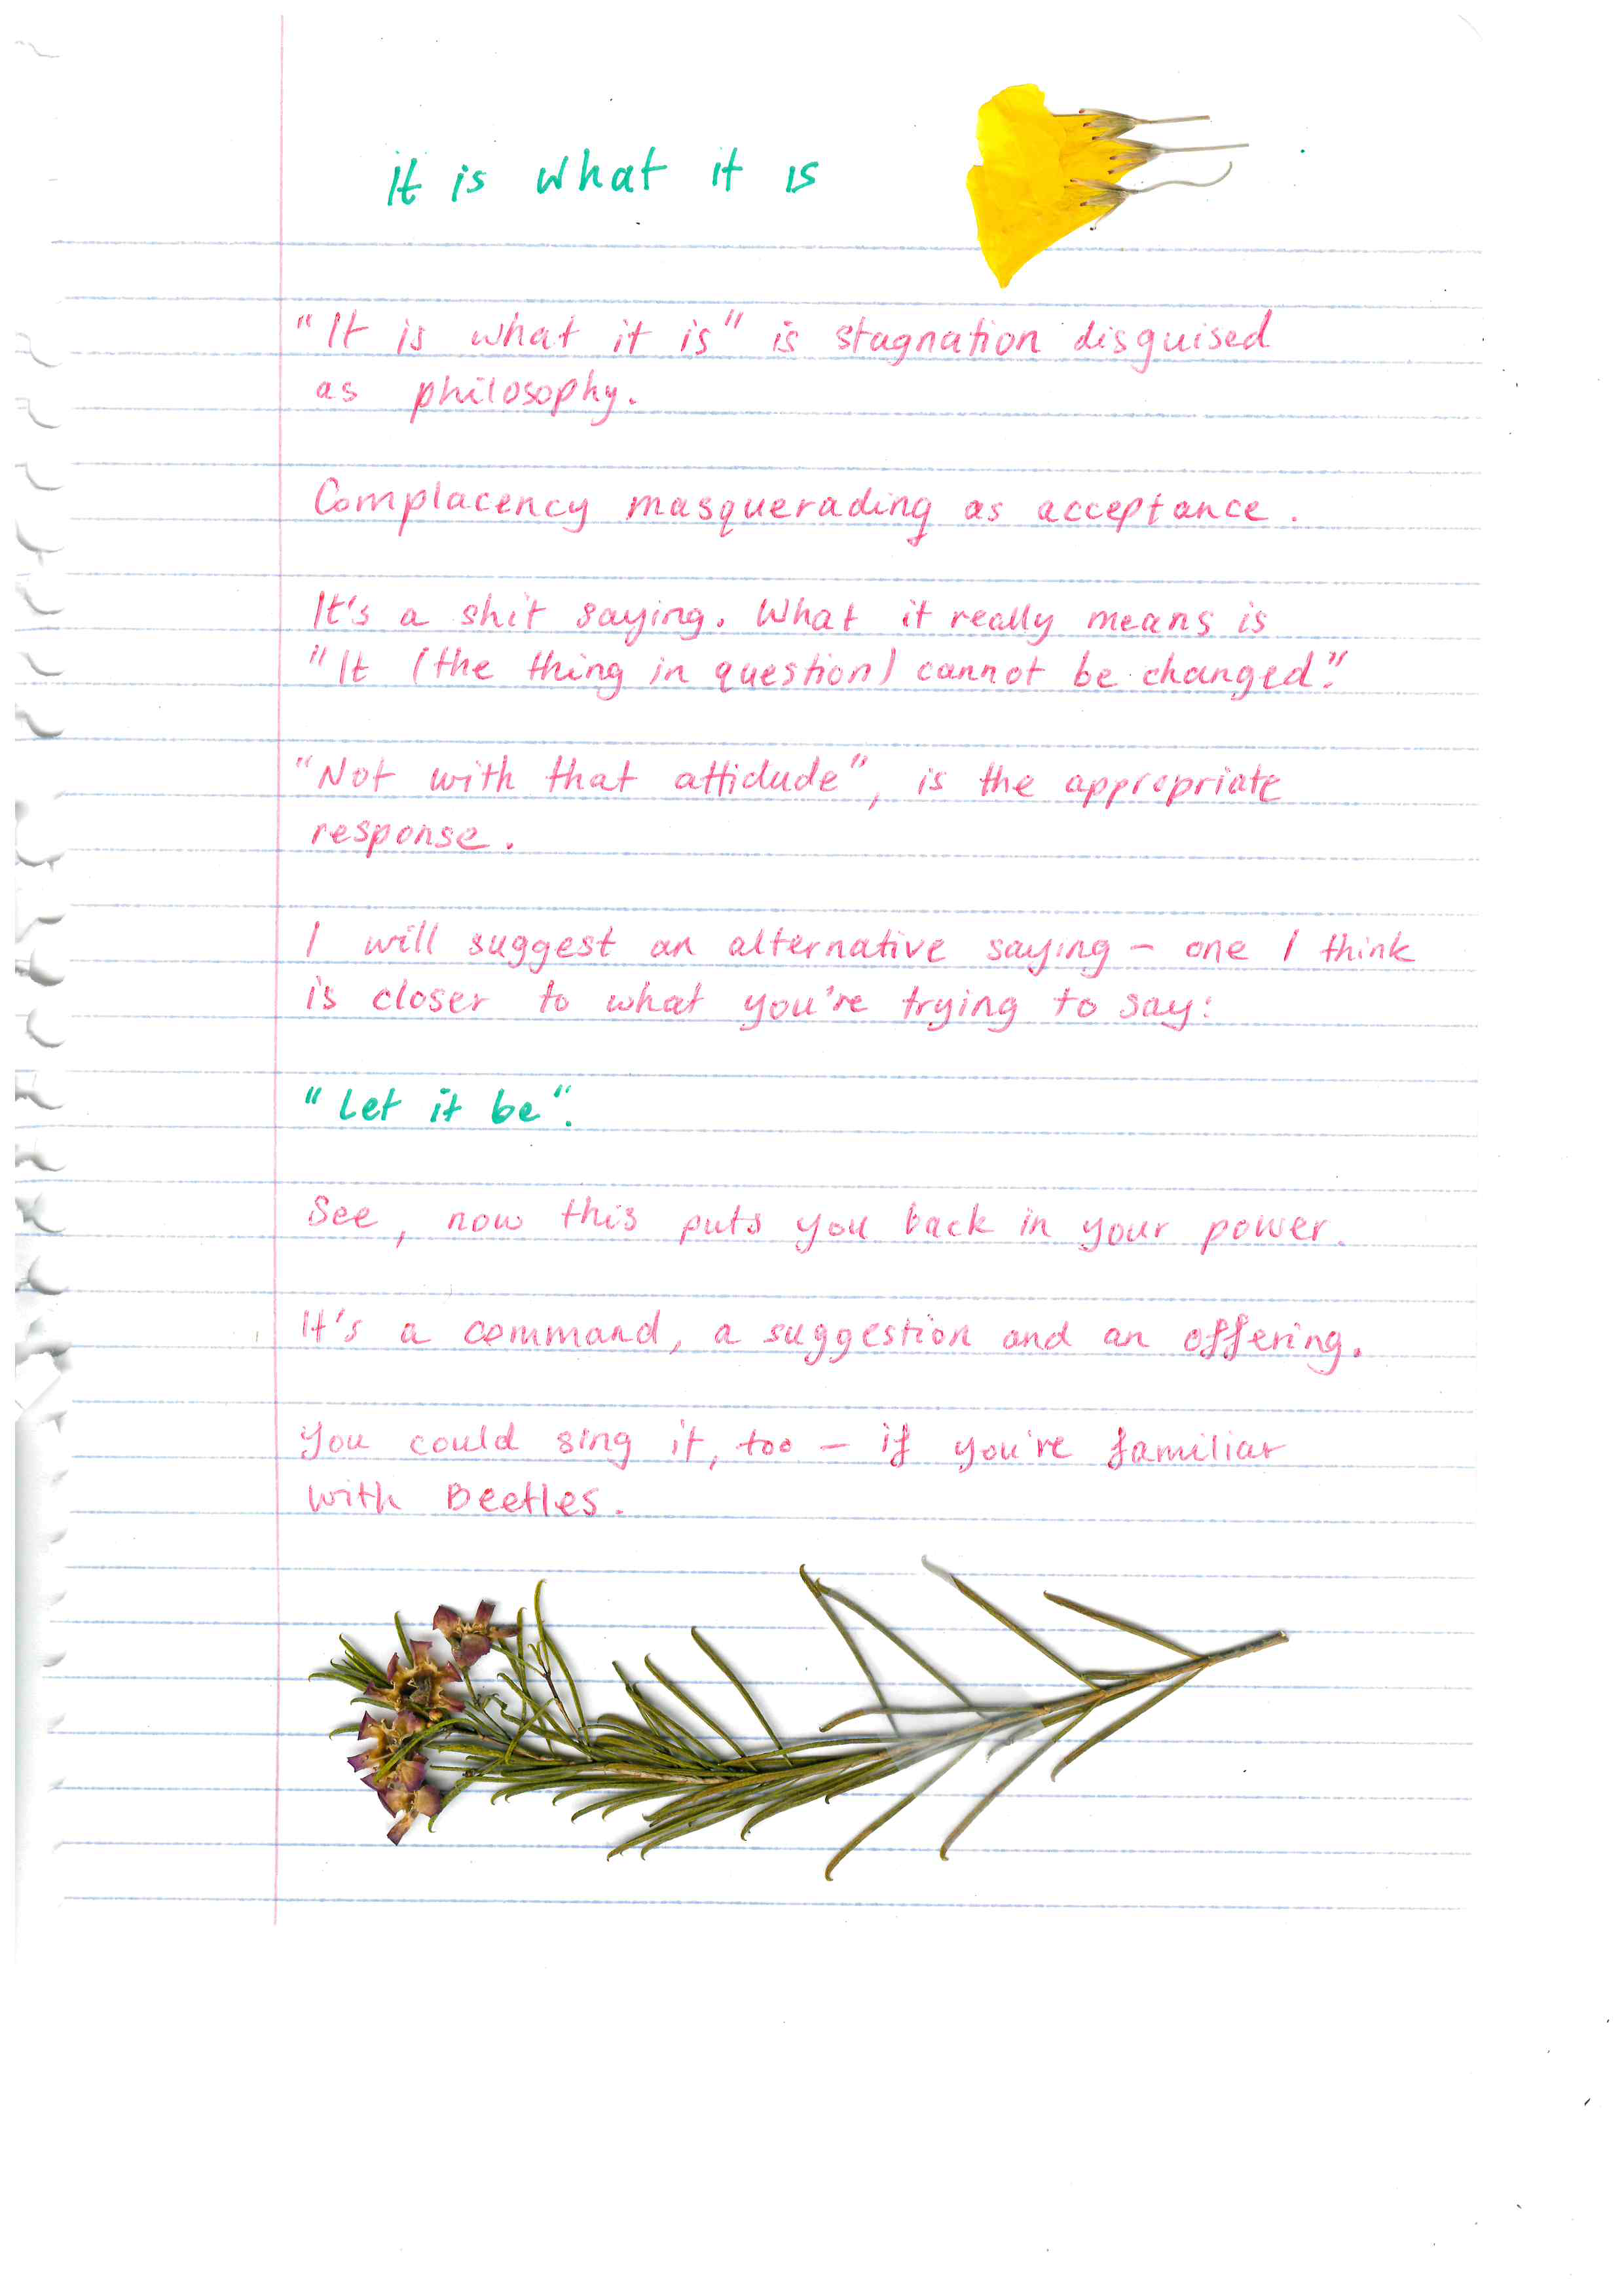 it is what it is
"It is what it is" is stagnation disguised
as philosophy.
Complacency masquerading as acceptance.
It's a shit saying. What it really means is
"It (the thing in question) cannot be changed".
"Not with that attidude", is the appropriate
response.
I will suggest an alternative saying – one I think
is closer to what you're trying to say:
"Let it be".
See, now this puts you back in your power.
It's a command, a suggestion and an offering.
You could sing it, too – if you're familiar
with Beetles.